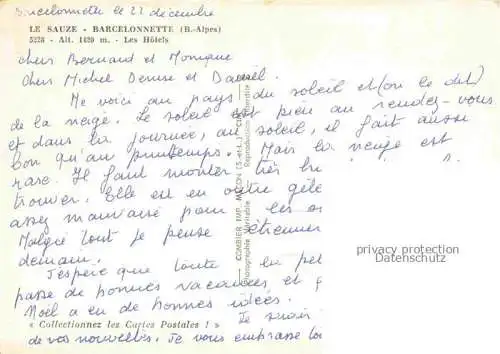 Barcelonnette le 27 décembre
LE SAUZE - BARCELONNETTE (B.-Alpes)
5228 - Alt. 1420 m. - Les Hôtels
chers Bernard et Monique
chers Michel Denise et Daniel.
Me voici au pays du soleil et (on le dit)
de la neige. Le soleil est bien au rendez-vous
et dans la journée, au soleil, il fait aussi
bon qu'au printemps. Mais la neige est
rare. Il faut monter très
trouver. Elle est en outre
assez mauvaise pour les
Malgré tout je pense étrenner
demain.
J'espère que toute
passe de bonnes vacances, et
Noël a eu de bonnes idées.
Je
« Collectionnez les Cartes Postales ! »
de vos nouvelles. Je vous embrasse
COMBIER IMP. MACON (S.-et-L.)
Photographie véritable Reproduction interdite
privacy protection
Datenschutz